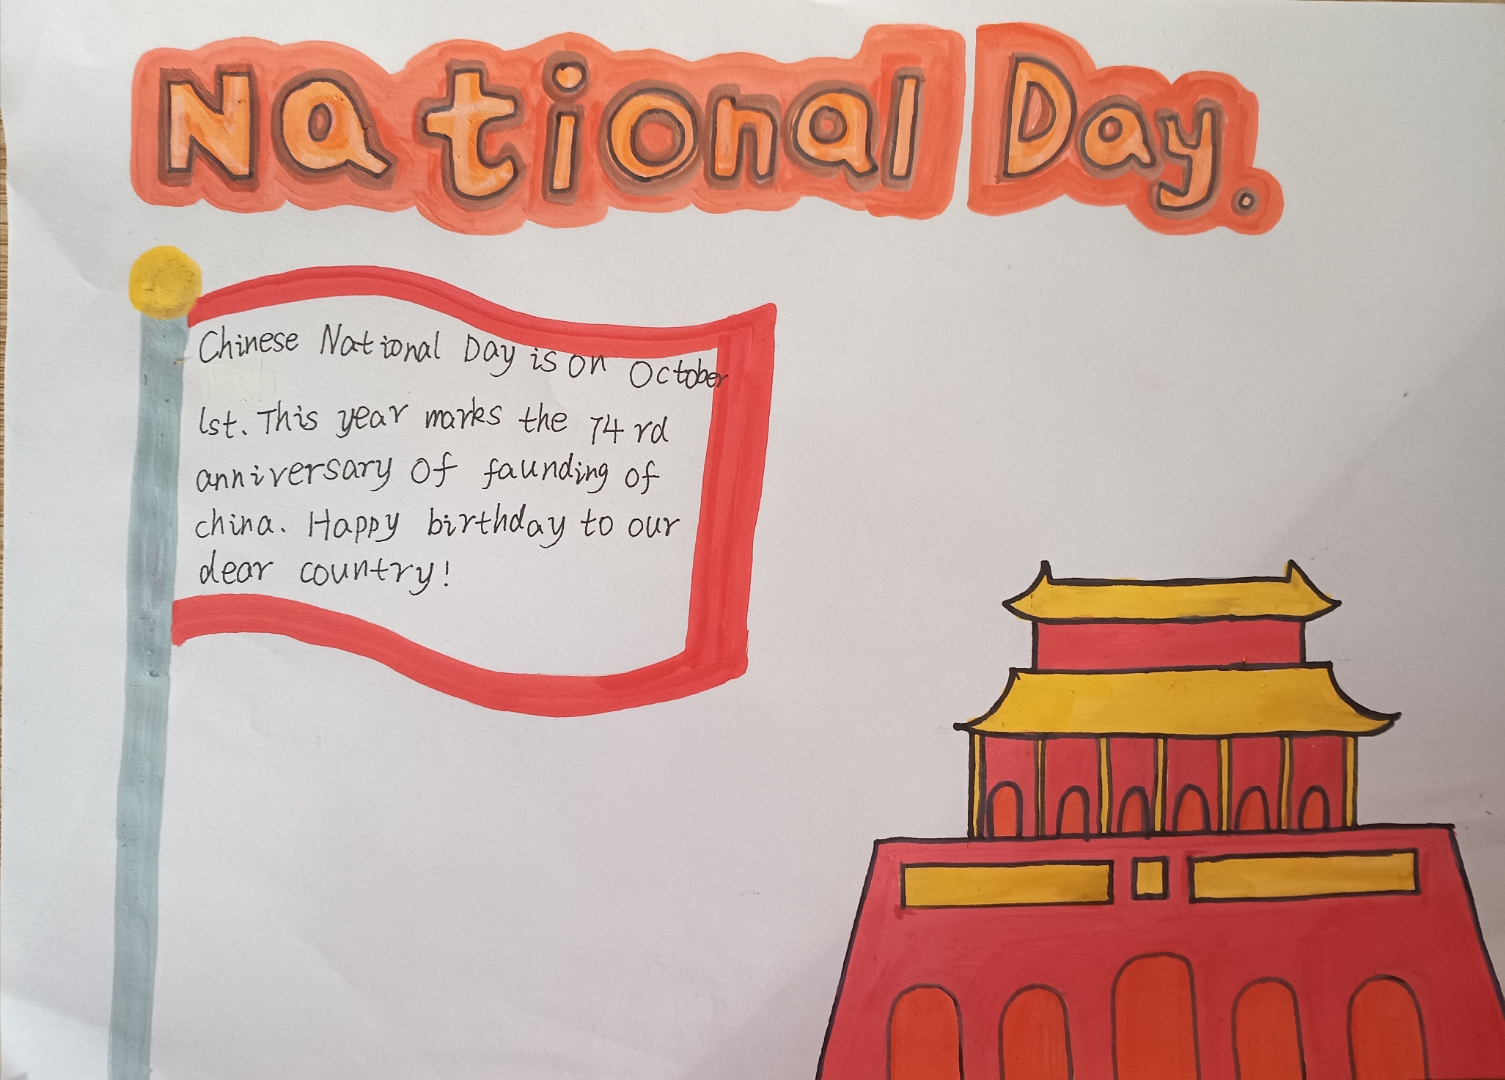 National Day.
Chinese National Day is on October
1st. This year marks the 74rd
anniversary of faunding of
china. Happy birthday to our
dear country!